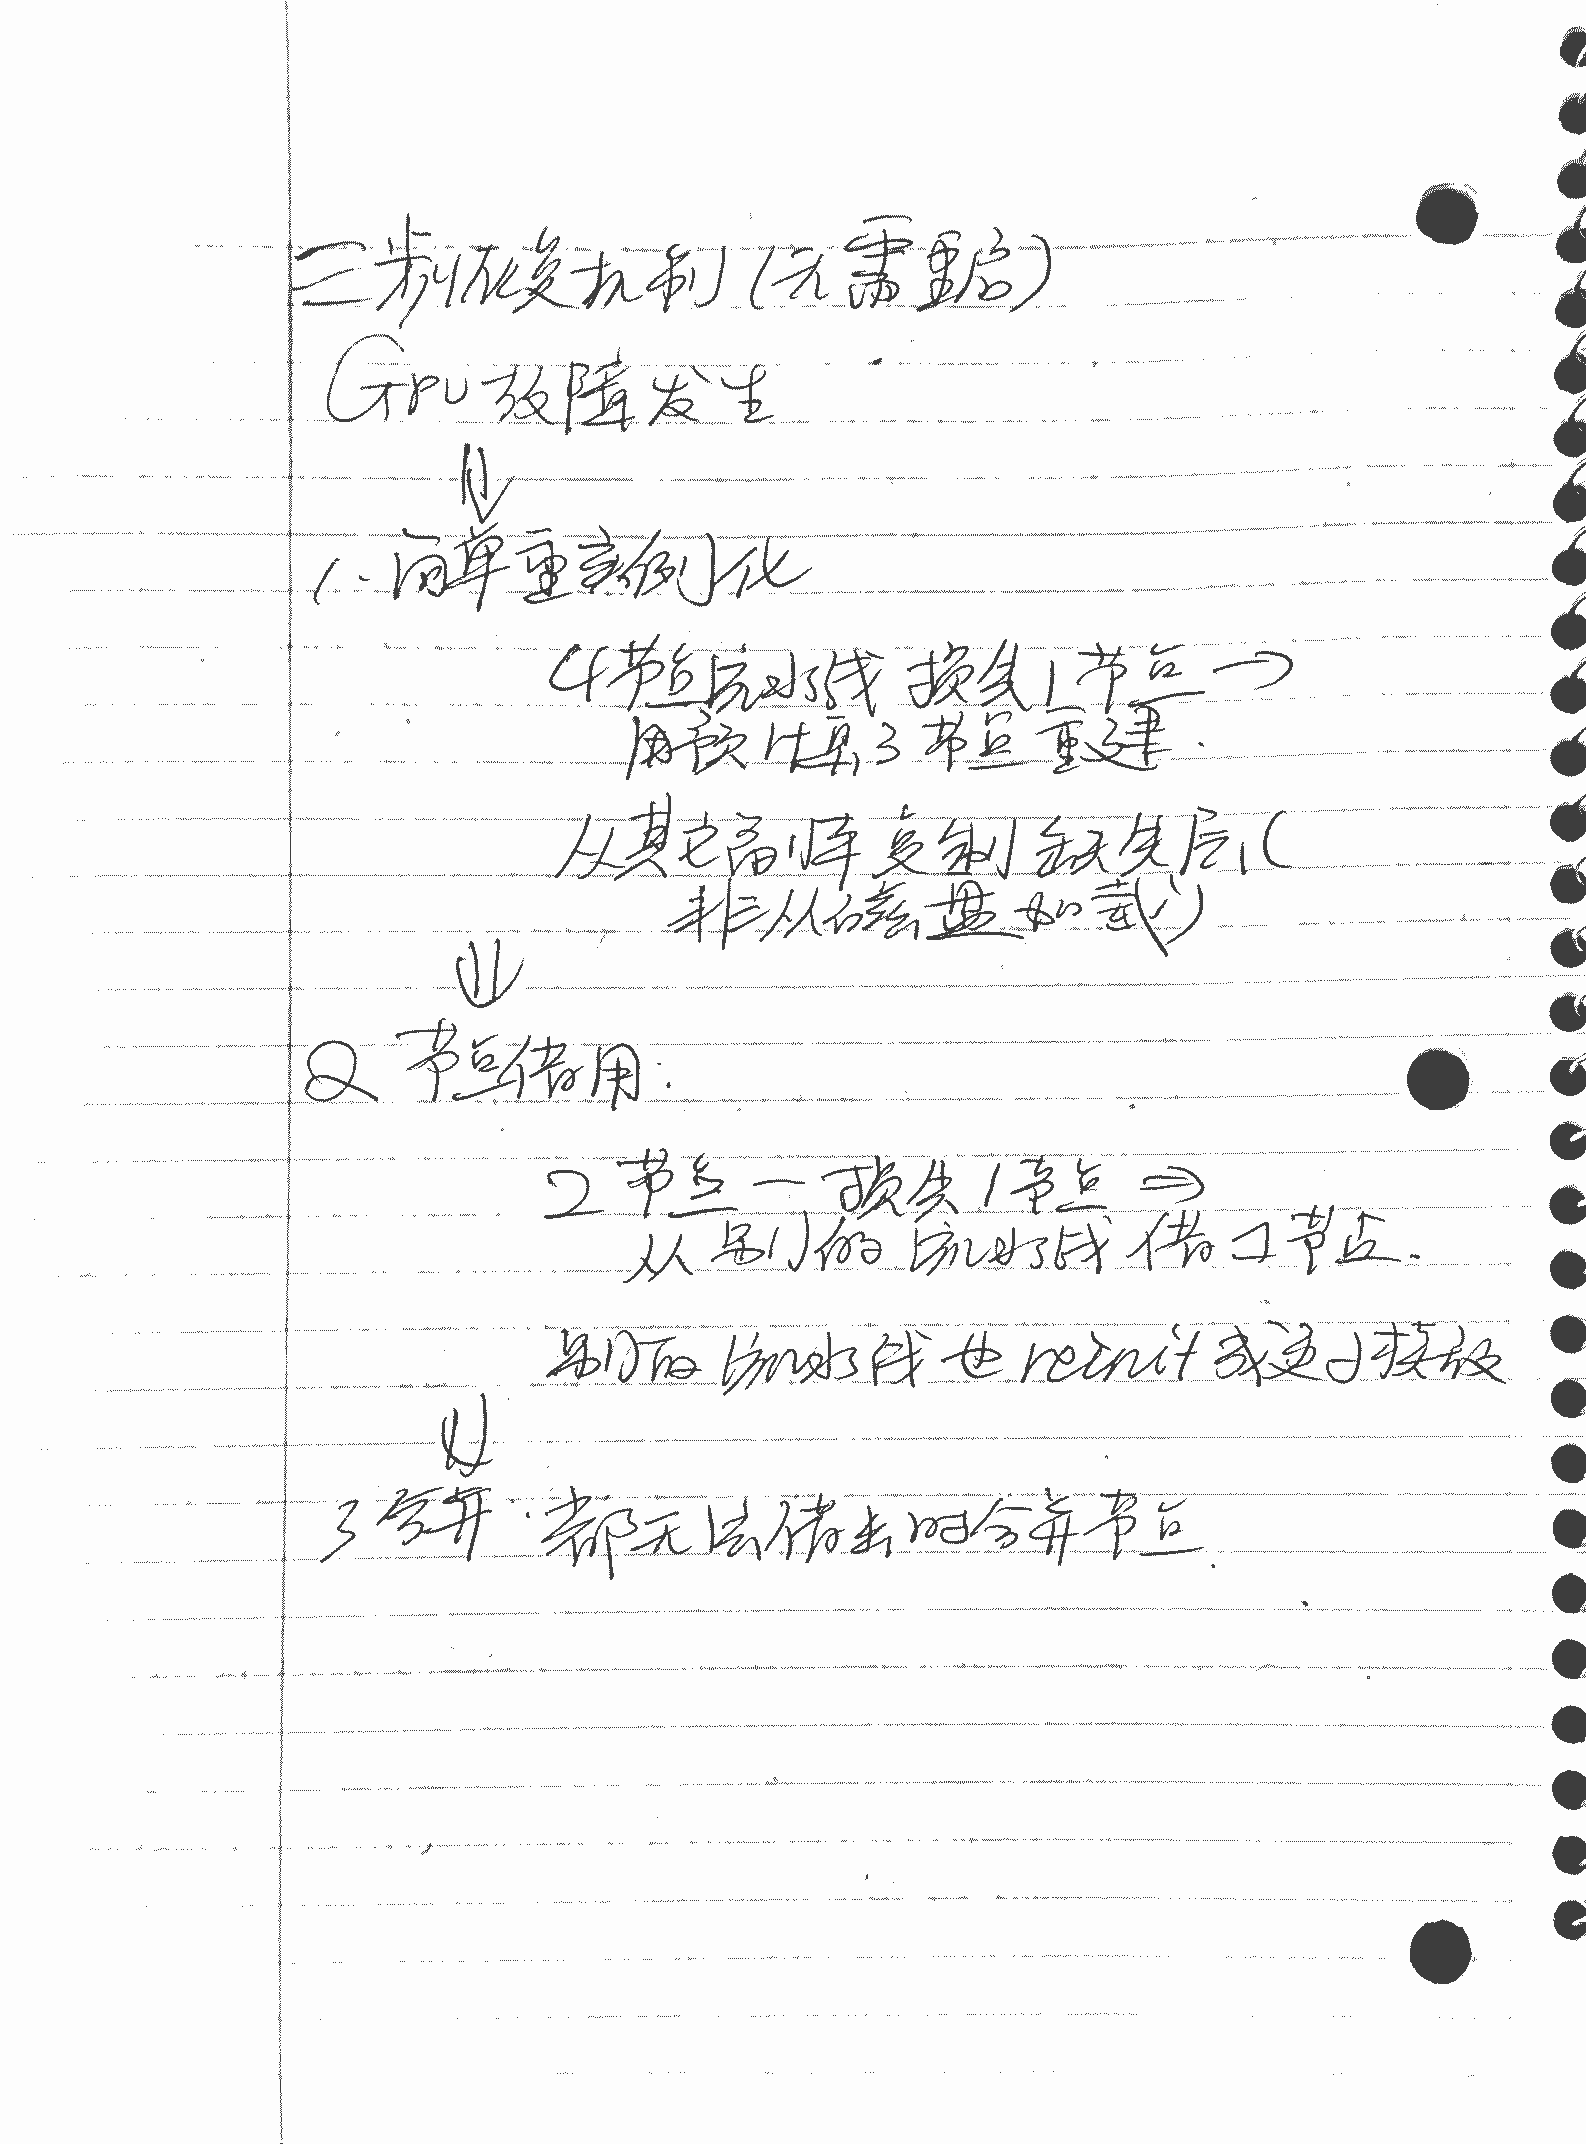 三步恢复机制(无需重启)
GPU故障发生
⇓
1. 简单重实例化
4节点流水线 损失1节点→
用预计算3节点重建.
从其它副库复制缺失层(
非从磁盘加载)
⇓
2 节点借用:
2节点一损失1节点⇒
从别的流水线借1节点.
别的流水线也reinit或更小模板
⇓
3合并·都无法借出时合并节点.